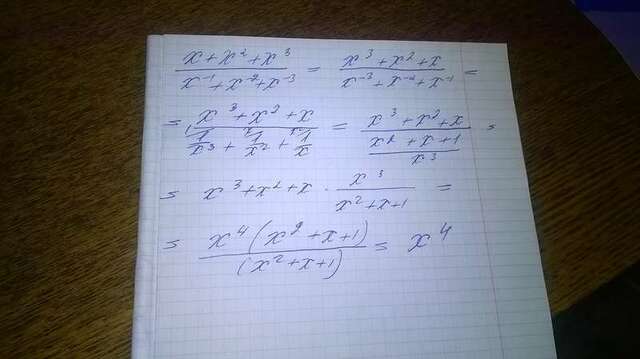 (x + x² + x³)/(x⁻¹ + x⁻² + x⁻³) = (x³ + x² + x)/(x⁻³ + x⁻² + x⁻¹) =
= (x³ + x² + x)/(1/x³ + 1/x² + 1/x) = (x³ + x² + x)/((x² + x + 1)/x³) =
= x³ + x² + x · x³/(x² + x + 1) =
= x⁴(x² + x + 1)/(x² + x + 1) = x⁴